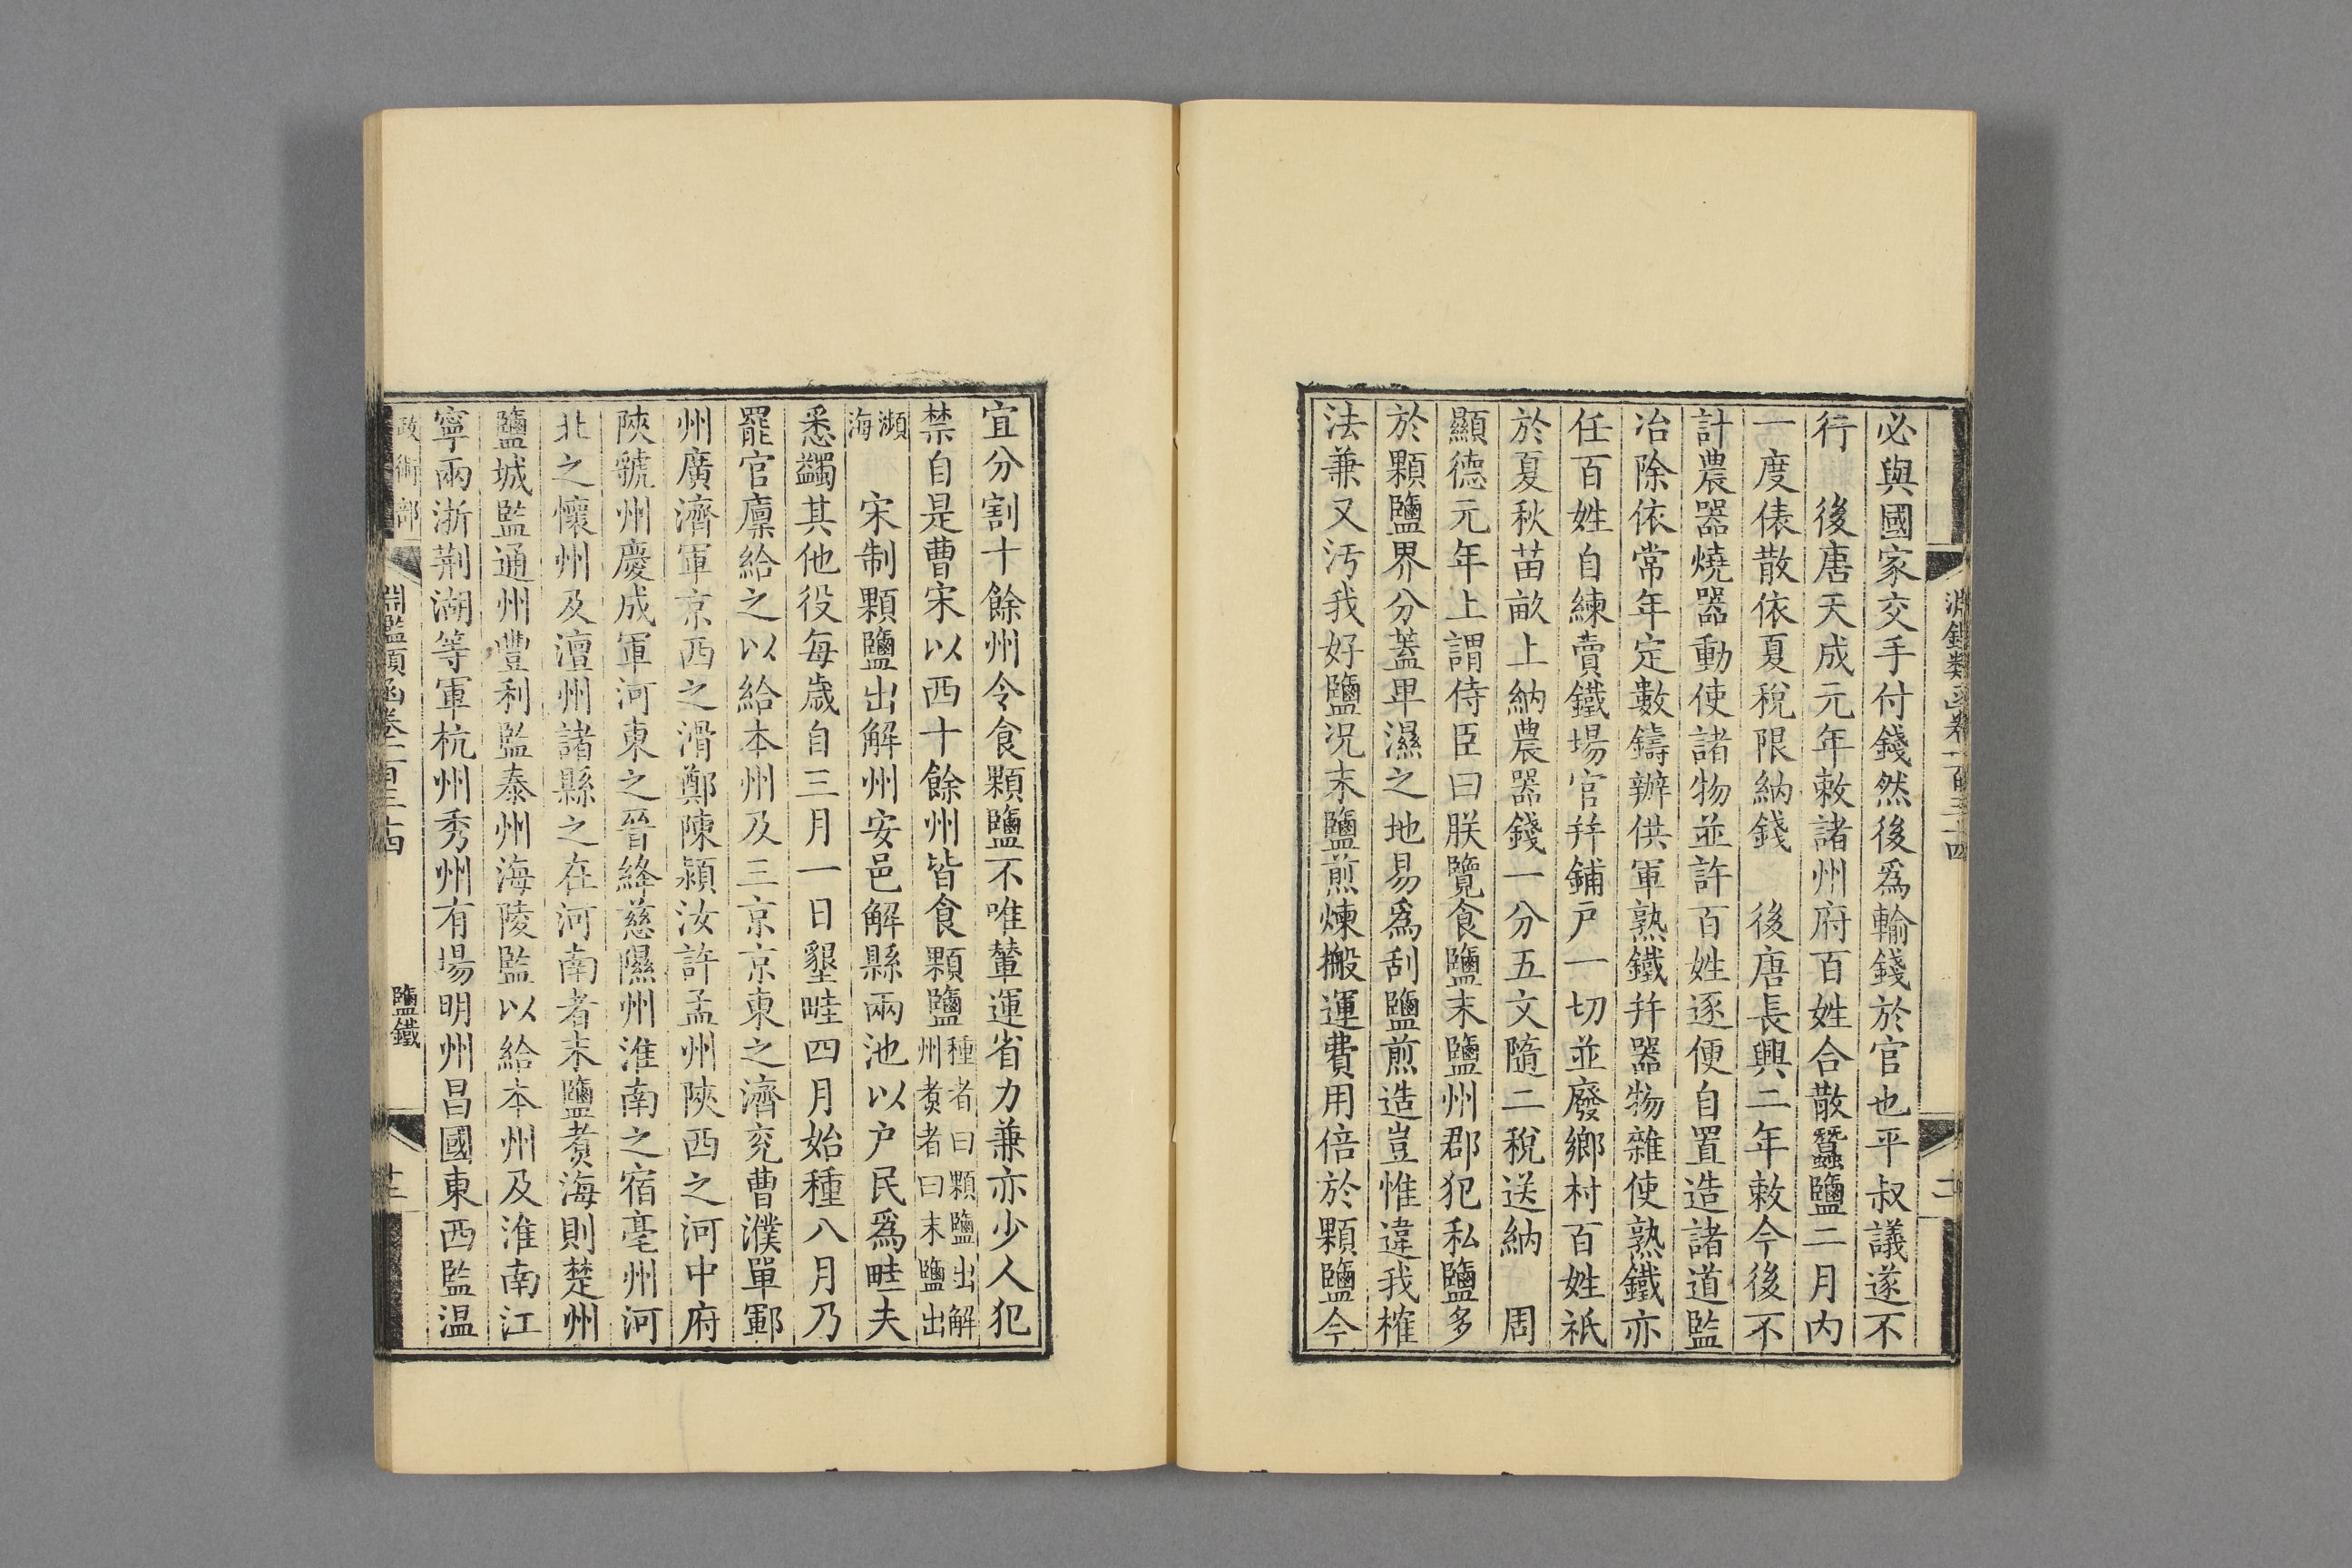 必與國家交手付錢然後爲輸錢於官也平叔議遂不
行　後唐天成元年敕諸州府百姓合散蠶鹽二月內
一度俵散依夏稅限納錢　後唐長興二年敕今後不
計農器燒器動使諸物並許百姓逐便自置造諸道監
冶除依常年定數鑄辦供軍熟鐵并器物雜使熟鐵亦
任百姓自練賣鐵場官并鋪戸一切並廢鄉村百姓祇
於夏秋苗畝上納農器錢一分五文隨二稅送納　周
顯德元年上謂侍臣曰朕覽食鹽末鹽州郡犯私鹽多
於顆鹽界分蓋卑濕之地易爲刮鹽煎造豈惟違我榷
法兼又汚我好鹽况末鹽煎煉搬運費用倍於顆鹽今
淵鑑類函卷一百三十四
二
宜分割十餘州令食顆鹽不唯輦運省力兼亦少人犯
禁自是曹宋以西十餘州皆食顆鹽種者曰顆鹽出解州煑者曰末鹽出
瀕海　宋制顆鹽出解州安邑解縣兩池以户民爲畦夫
悉蠲其他役每歲自三月一日墾畦四月始種八月乃
罷官廩給之以給本州及三京京東之濟兖曹濮單鄆
州廣濟軍京西之滑鄭陳潁汝許孟州陝西之河中府
陝虢州慶成軍河東之晉絳慈隰州淮南之宿亳州河
北之懷州及澶州諸縣之在河南者末鹽煑海則楚州
鹽城監通州豐利監泰州海陵監以給本州及淮南江
寧兩浙荆湖等軍杭州秀州有場明州昌國東西監温
政術部
淵鑑類函卷一百三十四
鹽鐵
十二